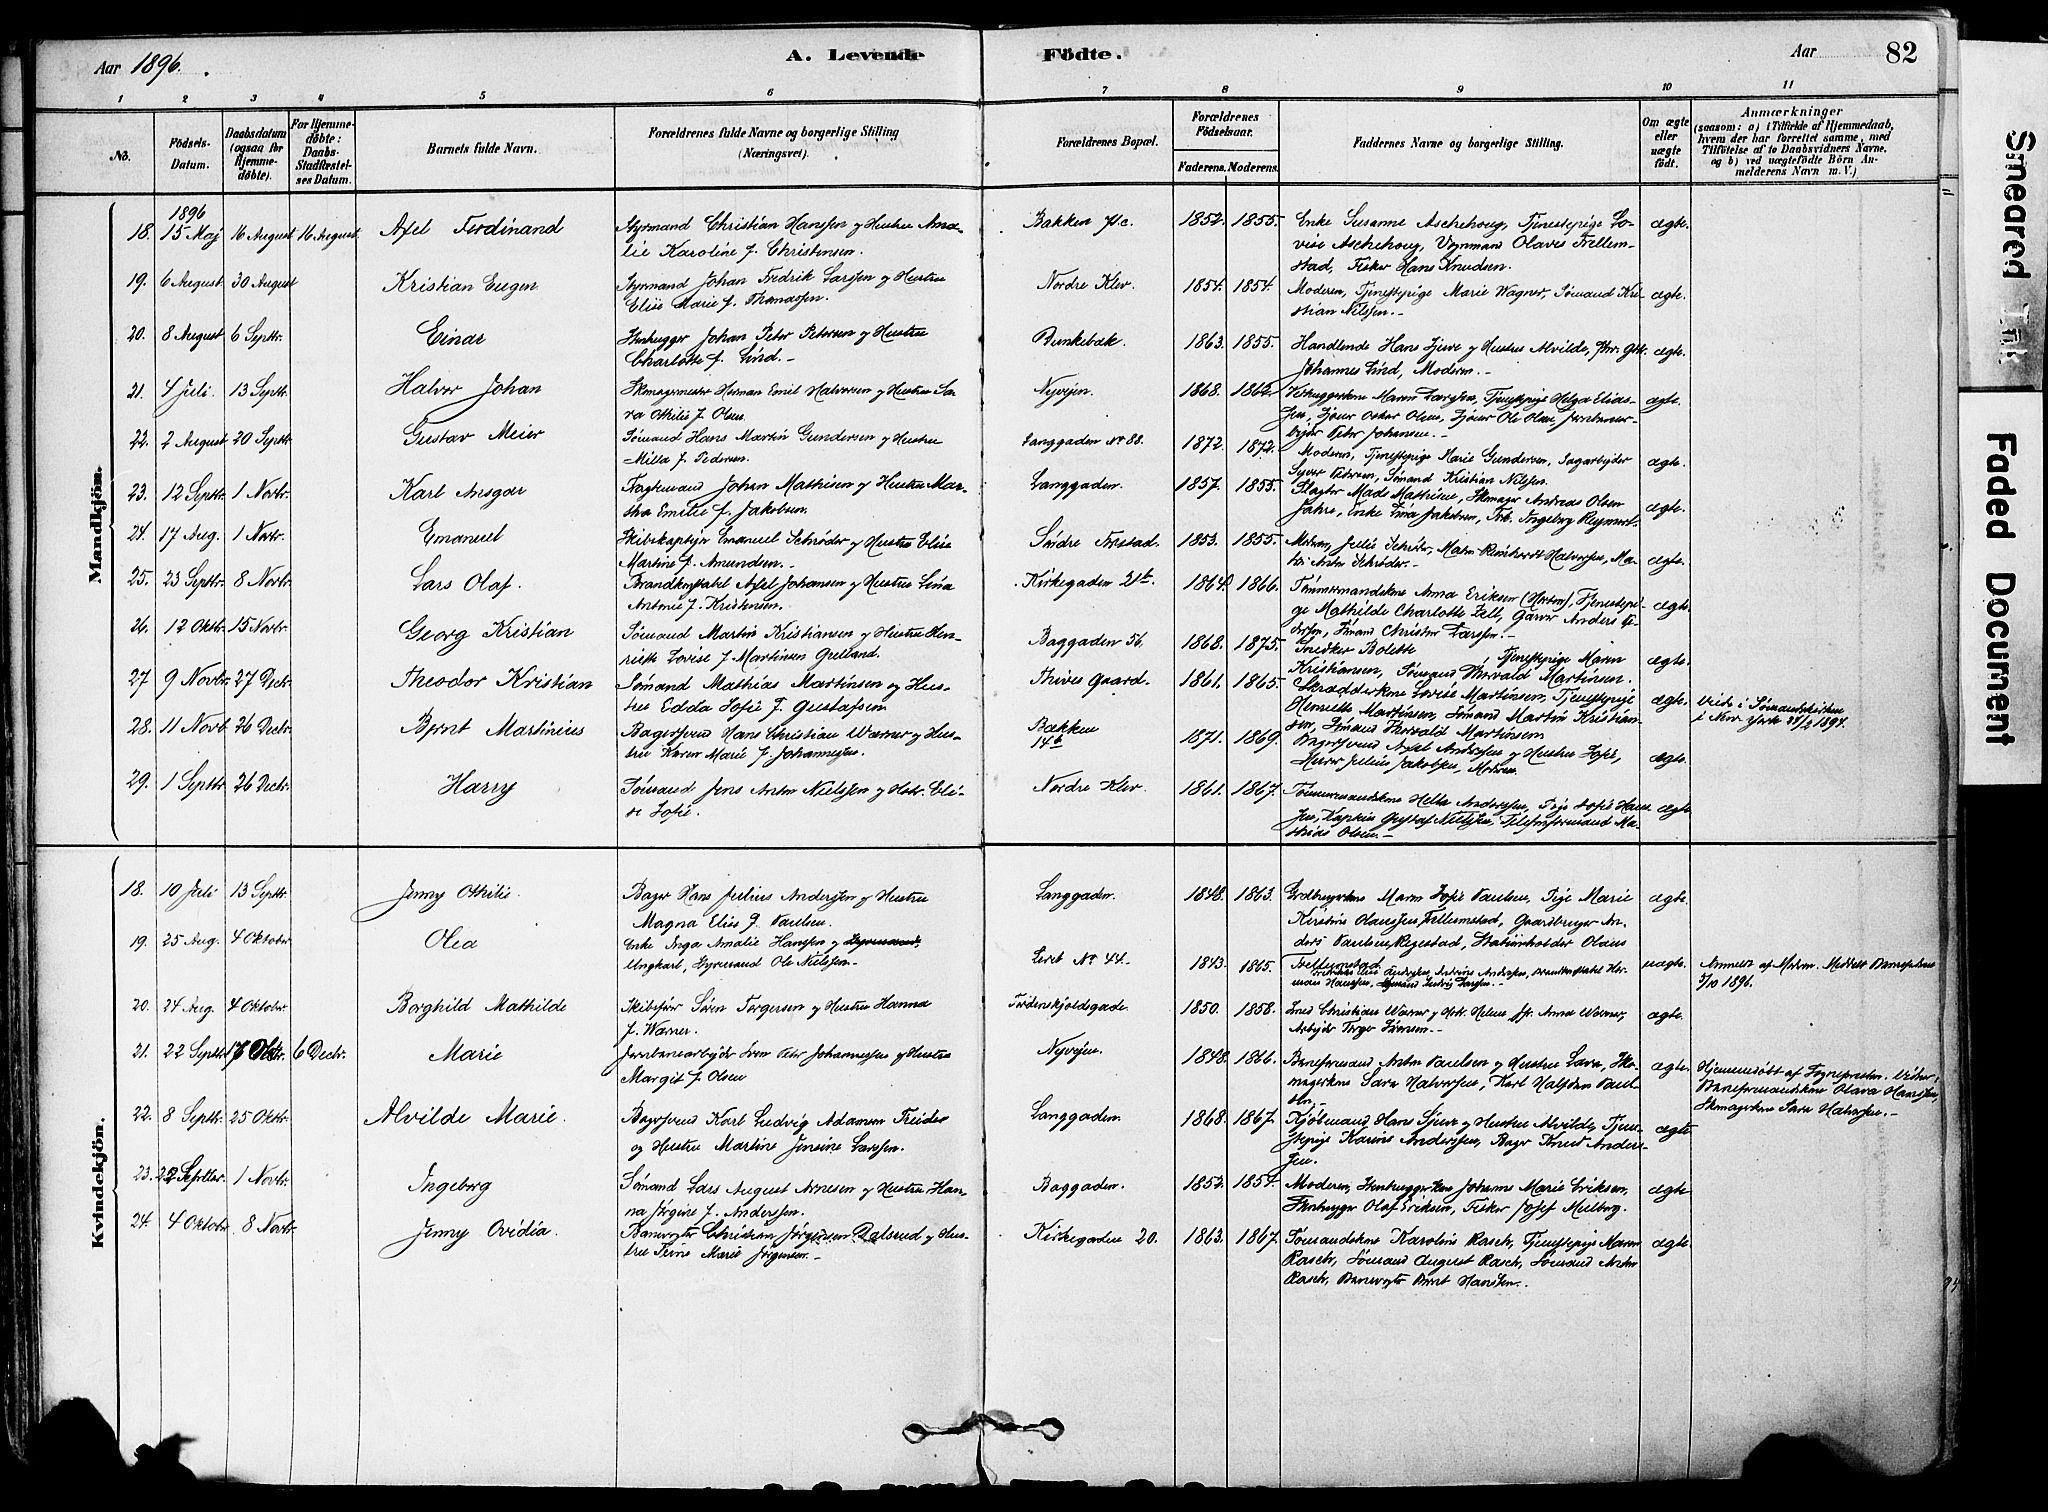 Aar 1896.
A. Levende Födte.
Aar
82
1 2 3 4 5 6 7 8 9 10 11
No.
Födsels-Datum.
Daabsdatum (ogsaa for Hjemmedøbte).
For Hjemmedøbte: Daabs-Stadfæstelses Datum.
Barnets fulde Navn.
Forældrenes fulde Navne og borgerlige Stilling (Næringsvei).
Forældrenes Bopæl.
Forældrenes Födselsaar.
Faderens. Moderens.
Faddernes Navne og borgerlige Stilling.
Om ægte eller uægte født.
Anmærkninger
(saasom: a) i Tilfælde af Hjemmedaab, hvem der har forrettet samme, med Tilföielse af to Daabsvidners Navne, og b) ved uægtefödte Börn Anmelderens Navn m. V.)
Mandkjön.
1896
18. 15 Maj 16 August 16 August Axel Ferdinand Styrmand Christian Hanssen & Hustru Ama-
lie Karoline f. Christensen. Bakken 71c. 1852. 1855. Enke Susanne Aschehoug, Tjenestepige Lo-
vise Aschehoug, Uggmand Olaves Tellem-
stad, Fisker Hans Knudsen. ægte.
19. 6 August 30 August Kristian Eugen Styrmand Johan Fredrik Larssen & Hustru
Elise Marie f. Thomassen. Nordre Klev. 1854. 1854. Moderen, Tjenestepige Marie Wagner, Sømand Kri-
stian Nilssen. ægte.
20. 8 August 6 Septbr. Einar Stenhugger Johan Peter Petersen & Hustru
Charlotte f. Lind. Bunkebæk. 1863. 1855. Handlende Hans Sjuve & Hustru Alvilde,
Johannes Lind, Moderen. ægte.
21. 4 Juli. 13 Septbr. Halvor Johan Skomagermester Herman Emil Halvorsen & Hustru Sa-
ra Othilie f. Olsen. Nyvejen. 1868. 1862. Maren Larssen, Tjenestepige Helga Elias-
sen, Oskar Olsen, Ole Olsen, Jernbanear-
bejder Peter Johansen. ægte.
22. 2 August 20 Septbr. Gustav Meier Sømand Hans Martin Gundersen & Hustru
Milla f. Pedersen. Langgaden No 88. 1872. 1872. Moderen, Tjenestepige Marie Gundersen, Sagarbejder
Syver Pedersen, Sømand Kristian Nilsen. ægte.
23. 12 Septbr. 1 Novbr. Karl Ansgar Fragtemand Johan Mathisen & Hustru Mar-
tha Emilie f. Jakobsen. Langgaden. 1857. 1855. Slagter Mads Mathisen, Skomager Andreas Olsen
Jahre, Enke Lina Jakobsen, Frk. Ingeborg Reymert. ægte.
24. 17 Aug. 1 Novbr. Emanuel Skibskaptejn Emanuel Schrøder & Hustru Elise
Martine f. Amundsen. Søndre Trestad. 1853. 1855. Moderen, Julie Schrøder, Malm Reinhardt Halvorsen,
Anton Schrøder. ægte.
25. 23 Septbr. 8 Novbr. Lars Olaf. Brandkonstabel Axel Johansen & Hustru Lina
Antonie f. Kristensen. Kirkegaden 21b. 1864. 1866. Tømmermandskone Anna Eriksen, Tjenestepi-
ge Mathilde Charlotte Zell, Garver Anders
Sømand Christen Larssen. ægte.
26. 12 Oktbr. 15 Novbr. Georg Kristian Sømand Martin Kristiansen & Hustru Hen-
riette Lovise f. Martinsen Grelland. Baggaden 56. 1868. 1875. Snedker Bolette Tjenestepige Maren
Kristiansen, Sømand Thorvald Martinsen. ægte.
27 9 Novbr. 27 Decbr. Theodor Kristian Sømand Mathias Martinsen og Hus-
tru Edda Sofie f. Gustafsen. Thives Gaard. 1861. 1865. Skrædderkone Lovise Martinsen, Tjenestepige
Henriette Martinsen, Sømand Martin Kristian-
sen, Sømand Thorvald Martinsen. ægte. Viede i Sømandskirken
i New York 27/2 1894.
28. 11 Novb. 26 Decbr. Bernt Martinius Bagersvend Hans Christian Warner & Hus-
tru Karen Marie f. Johannessen. Bakken
14b 1871. 1869. Bagersvend Axel Andersen & Hustru Sofie,
Murer Julius Jakobsen, Moderen. ægte.
29. 1 Septbr. 26 Decbr. Harry Sømand Jens Anton Nielssen & Hstr. Eli-
se Sofie. Nordre Klev. 1861. 1867. Tømmermandskone Helle Anderssen, Pige Sofie Hans-
sen, Kaptein Gustaf Nielsen, Telefonformand Ma-
thias Olsen. ægte
Kvindekjön.
18. 10 Juli 13 Septbr. Jenny Othilie. Bager Hans Julius Anderssen & Hustru
Magna Elise f. Paulsen. Langgaden. 1848. 1863. Maren Sofie Paulsen, Pige Marie
Kirstine Olaussen, Tellemstad, Gaardbruger An-
ders Paulsen, Regestad, Stationholder Olaus
Tellemstad. ægte.
19. 25 Aug. 4 Oktober Olea Enke Inga Amalie Hanssen & Styrmand
Ungkarl, Styrmand Ole Nielssen. Leret No 44. 1843. 1865. Andrine Andersen, Brandkonstabel Her-
man Hanssen, Sømand Ludvig Larssen. uægte. Anmeldt af Moderen. Meddelt
3/10 1896.
20. 24 Aug. 4 Oktober. Borghild Mathilde Skibsfører Søren Torgersen & Hustru Hanna
f. Warner. Tordenskjoldsgade. 1850. 1858. Smed Christian Warner & Hstr. Helene, Fr. Anna Warner,
Arbejder Torger Sørensen. ægte.
21. 22 Septbr. 17 Oktbr. 6 Decbr. Marie Jernbanearbejder Sven Peter Johannessen & Hustru
Margit f. Olsen Nyvejen. 1848. 1866. Baneformand Anton Paulsen & Hustru Sara, Sko-
magerkone Sara Halvorsen, Karl Halfdan Paul-
sen. ægte. Hjemmedøbt af Sogneprесten. Vidner,
Baneformandskone Olava Hanssen,
Skomagerkone Sara Halvorsen.
22. 8 Septbr. 25 Oktbr. Alvilde Marie. Bagersvend Karl Ludvig Adamsen Treider
og Hustru Martine Jensine Larssen. Langgaden. 1868. 1867. Kjøbmand Hans Sjuve & Hustru Alvilde, Tjene-
stepige Karine Anderssen, Bager Knut Anders-
sen. ægte
23. 22 Septbr. 1 Novbr. Ingeborg Sømand Lars August Arnesen & Hustru Han-
na Jørgine f. Anderssen. Baggaden. 1852. 1854. Moderen, Stenhuggerkone Johanne Marie Eriksen,
Stenhugger Olaf Eriksen, Fisker Josef Milberg. ægte
24. 4 Oktober 8 Novbr. Jenny Ovidia. Banevogter Christian Jørgensen Dalsrud & Hus-
tru Trine Marie Jørgensen. Kirkegaden 20. 1863. 1867. Sømandskone Karoline Rasch, Tjenestepige Maren
Rasch, Sømand August Rasch, Sømand Anton
Rasch, Banevogter Bernt Hanssen. ægte.
Smeared Ink
Faded Document